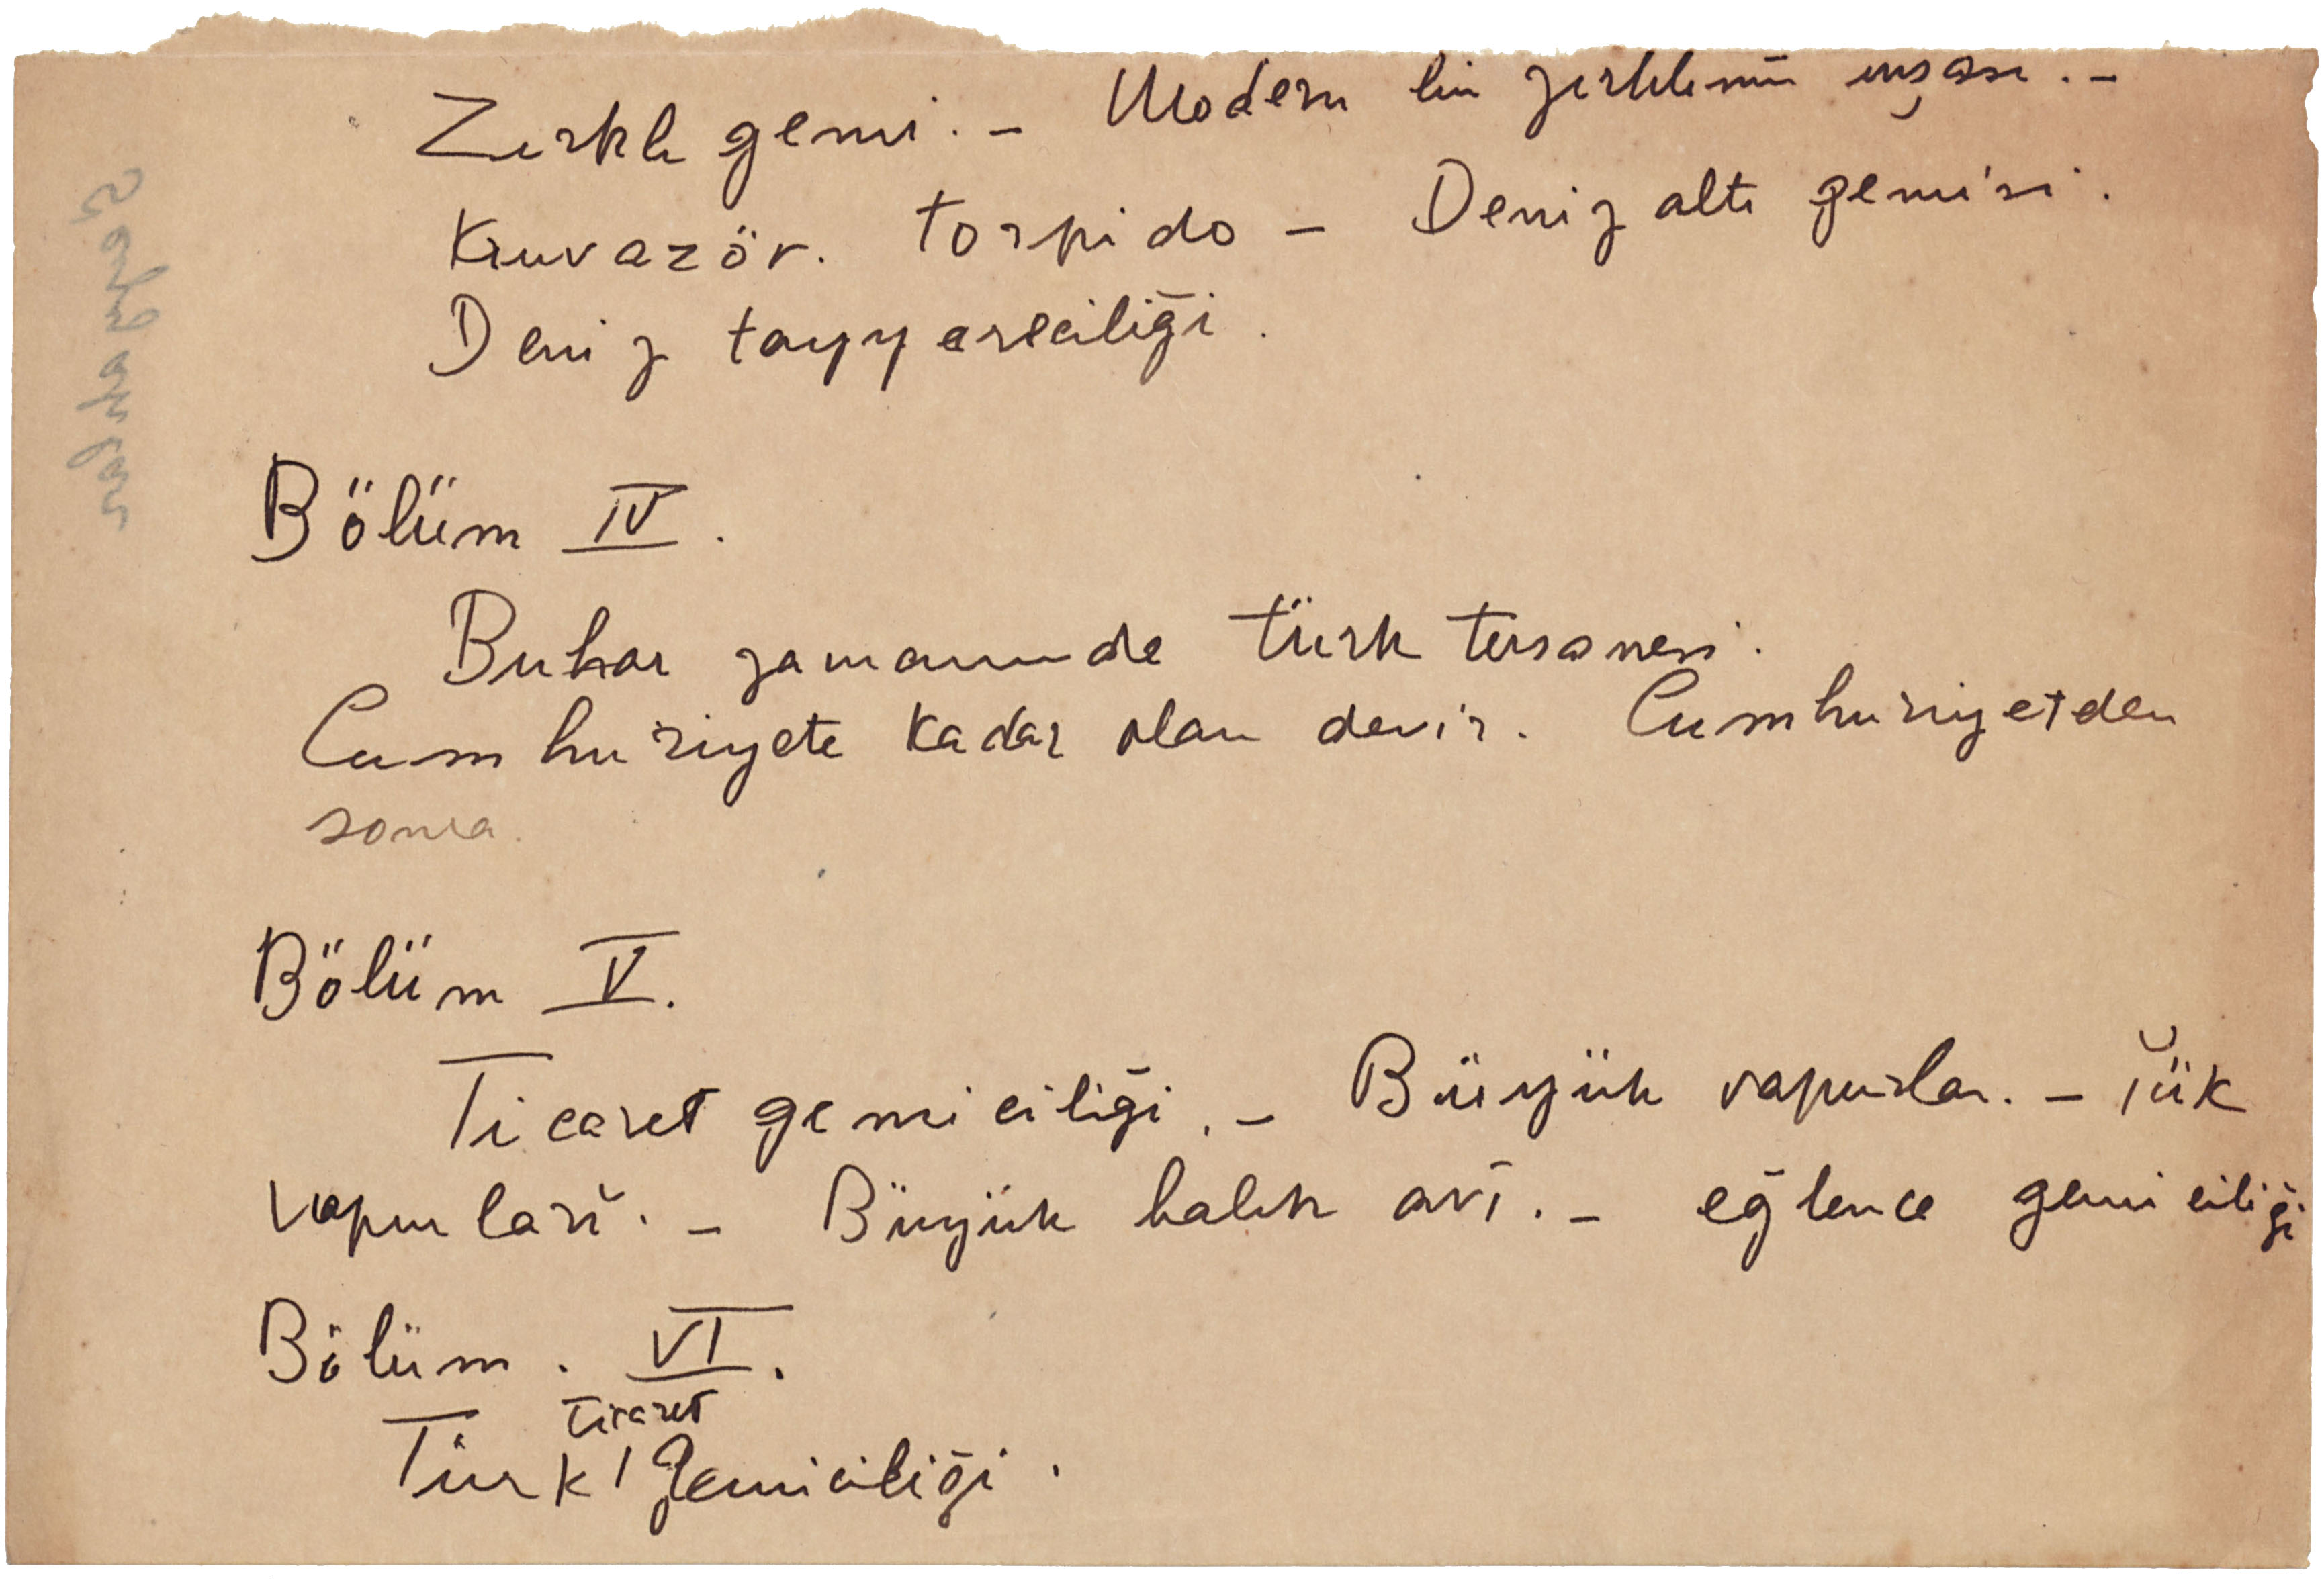 Zırhlı gemi. - Modern bir zırhlının inşası. -
Kruvazör. Torpido - Deniz altı gemisi.
Deniz tayyareciliği.
Bölüm IV.
Buhar zamanında türk tersanesi.
Cumhuriyete kadar olan devir. Cumhuriyetden
sonra.
Bölüm V.
Ticaret gemiciliği. - Büyük vapurlar. - yük
vapurları. - Büyük balık avı. - eğlence gemiciliği
Bölüm. VI.
ticaret
Türk gemiciliği.